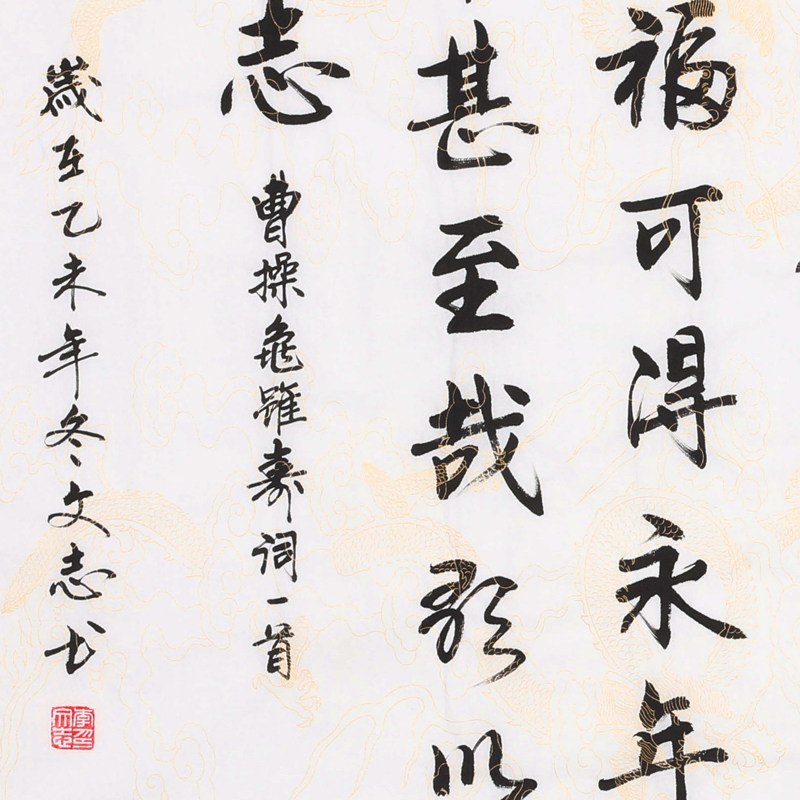 福可得永年
甚至哉歌以
志
曹操龟虽寿词一首
歲在乙未年冬文志书